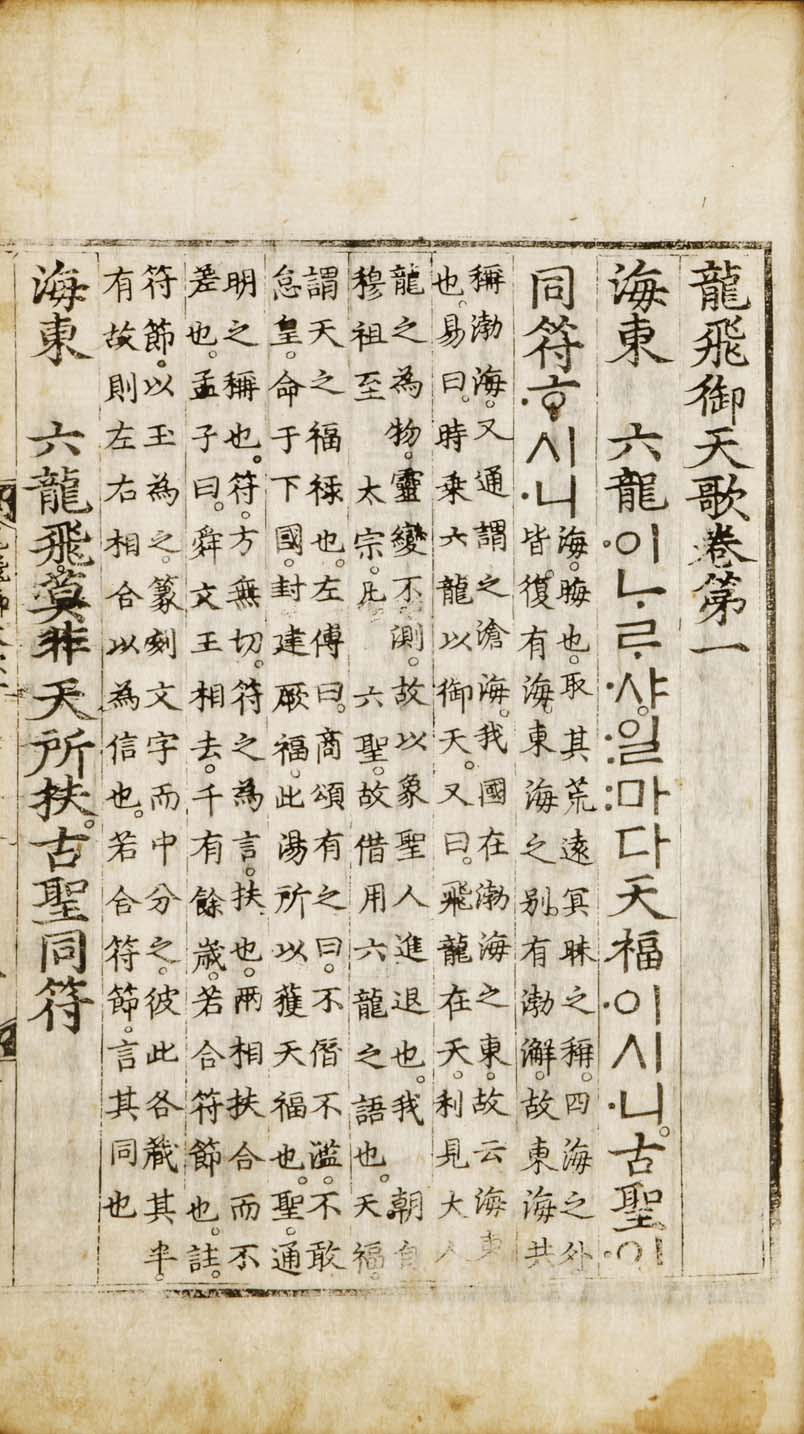 龍飛御天歌卷第一
海東 六龍·이ᄂᆞ·ᄅᆞ·샤。:일:마다天福·이시·니。古聖·이
同符·ᄒᆞ시·니
海。晦也。取其荒遠冥昧之稱。四海之外
皆復有海。東海之别。有渤澥。故東海共
稱渤海。又通謂之滄海。我國在渤海之東。故云海東
也。易曰。時乘六龍以御天。又曰。飛龍在天。利見大人
龍之為物。靈變不測。故以象聖人進退也。我 朝自
穆祖至 太宗。凡 六聖。故借用六龍之語也。天福。
謂天之福祿也。左傳曰。商頌有之曰。不僭不濫。不敢
怠皇。命于下國。封建厥福。此湯所以獲天福也。聖。通
明之稱也。符。方無切。符之為言。扶也。兩相扶合而不
差也。孟子曰。舜文王相去。千有餘歲。若合符節也。註。
符節。以玉為之。篆刻文字而中分之。彼此各藏其半。
有故則左右相合以為信也。若合符節。言其同也
海東 六龍飛。莫非天所扶。古聖同符